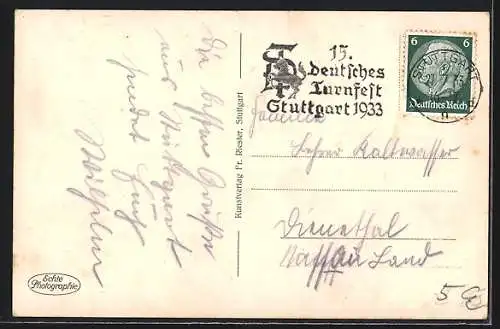 Die besten Grüße
aus Stuttgart
sendet Euch
Wilhelm
Echte
Photographie
Kunstverlag Fr. Riester, Stuttgart
15.
Deutsches
Turnfest
Stuttgart 1933
6 6
Deutsches Reich
STUTTGART
Familie
Lehrer Kaltwasser
Dienethal
Nassau Land
5